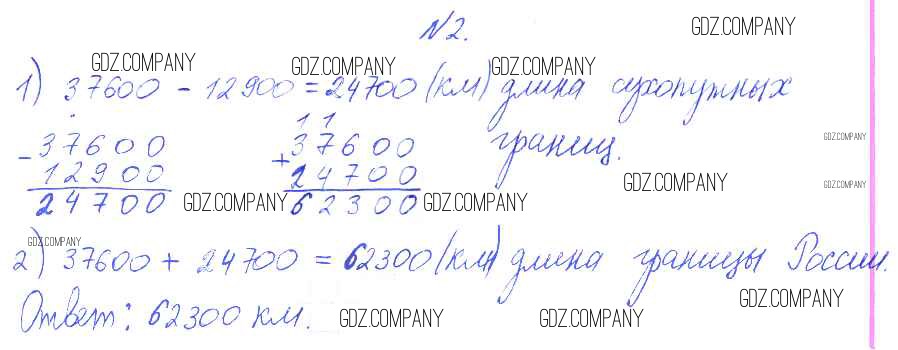 №2.
GDZ.COMPANY
GDZ.COMPANY GDZ.COMPANY GDZ.COMPANY
1) 37600 - 12900 = 24700 (км) длина сухопутных
границ.
- 37600
12900
24700
1 1
+ 37600
24700
62300
GDZ.COMPANY
GDZ.COMPANY
GDZ.COMPANY
GDZ.COMPANY GDZ.COMPANY
GDZ.COMPANY
2) 37600 + 24700 = 62300 (км) длина границы России.
GDZ.COMPANY
Ответ: 62300 км.
GDZ.COMPANY GDZ.COMPANY